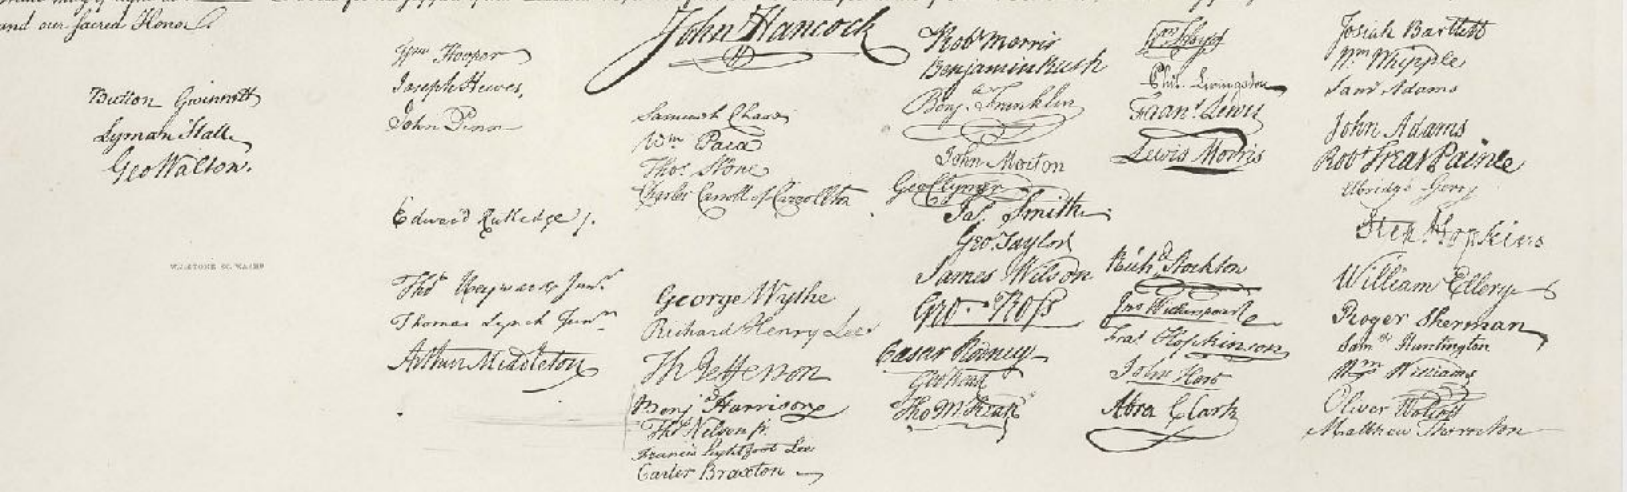 and our sacred Honor.
Button Gwinnett
Lyman Hall
Geo Walton.
Wm Hooper
Joseph Hewes,
John Penn
Edward Rutledge /.
Thos Heyward Junr.
Thomas Lynch Junr.
Arthur Middleton
John Hancock
Samuel Chase
Wm Paca
Thos Stone
Charles Carroll of Carrollton
George Wythe
Richard Henry Lee
Th Jefferson
Benj Harrison
Thos Nelson jr.
Francis Lightfoot Lee
Carter Braxton
Robt Morris
Benjamin Rush
Benj. Franklin
John Morton
Geo Clymer
Jas. Smith.
Geo. Taylor
James Wilson
Geo. Ross
Caesar Rodney
Geo Read
Tho M:Kean
Wm Floyd
Phil. Livingston
Frans. Lewis
Lewis Morris
Richd. Stockton
Jno Witherspoon
Fras. Hopkinson
John Hart
Abra Clark
Josiah Bartlett
Wm Whipple
Saml Adams
John Adams
Robt Treat Paine
Elbridge Gerry
Step Hopkins
William Ellery
Roger Sherman
Samel Huntington
Wm Williams
Oliver Wolcott
Matthew Thornton
W.J. STONE SC. WASHN